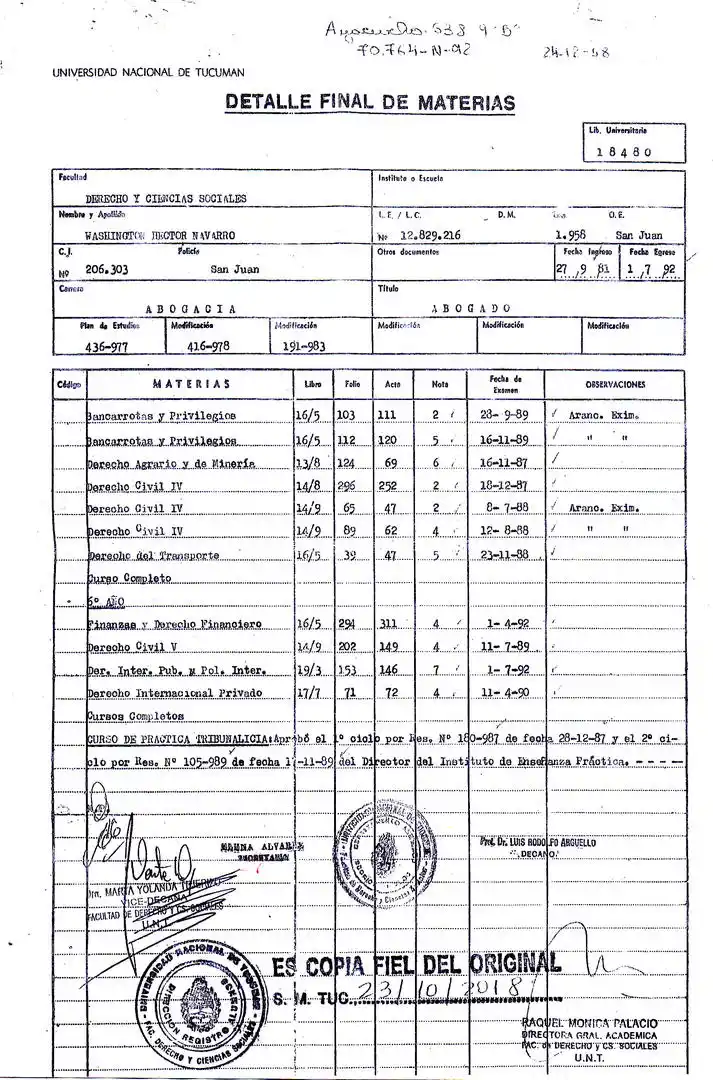 Ayacucho 538 9 "B"
70.764-N-92
24-12-98
UNIVERSIDAD NACIONAL DE TUCUMAN
DETALLE FINAL DE MATERIAS
Lib. Universitaria
18480
Facultad
DERECHO Y CIENCIAS SOCIALES
Instituto o Escuela
Nombre y Apellido
WASHINGTON HECTOR NAVARRO
L.E. / L.C. D.M. O.E.
Nº 12.829.216 1.958 San Juan
C.J. Policía
Nº 206.303 San Juan
Otros documentos
Fecha Ingreso Fecha Egreso
27 9 81 1 7 92
Carrera
ABOGACIA
Título
ABOGADO
Plan de Estudios Modificación Modificación Modificación Modificación Modificación
436-977 416-978 191-983
Código MATERIAS Libro Folio Acta Nota Fecha de Examen OBSERVACIONES
Bancarrotas y Privilegios 16/5 103 111 2 28- 9-89 Aranc. Exim.
Bancarrotas y Privilegios 16/5 112 120 5 16-11-89 " "
Derecho Agrario y de Minería 13/8 124 69 6 16-11-87
Derecho Civil IV 14/8 296 252 2 18-12-87
Derecho Civil IV 14/9 65 47 2 8- 7-88 Aranc. Exim.
Derecho Civil IV 14/9 89 62 4 12- 8-88 " "
Derecho del Transporte 16/5 39 47 5 23-11-88
Curso Completo
6º AÑO
Finanzas y Derecho Financiero 16/5 294 311 4 1- 4-92
Derecho Civil V 14/9 202 149 4 11- 7-89
Der. Inter. Pub. y Pol. Inter. 19/3 153 146 7 1-7-92
Derecho Internacional Privado 17/7 71 72 4 11- 4-90
Cursos Completos
CURSO DE PRACTICA TRIBUNALICIA:Aprobó el 1º ciclo por Res. Nº 180-987 de fecha 28-12-87 y el 2º ci-
clo por Res. Nº 105-989 de fecha 17-11-89 del Director del Instituto de Enseñanza Práctica. - - - -
ALVAREZ
SECRETARIA
Prof. Dr. LUIS RODOLFO ARGUELLO
DECANO
Dra. MARIA YOLANDA
VICE-DECANA
FACULTAD DE DERECHO Y CS. SOCIALES
U.N.T.
UNIVERSIDAD NACIONAL DE TUCUMAN
DIRECCION REGISTRO ALUMNOS
FAC. DERECHO Y CIENCIAS SOCIALES
ES COPIA FIEL DEL ORIGINAL
S. M. TUC., 23/10/2018
RAQUEL MONICA PALACIO
DIRECTORA GRAL. ACADEMICA
FAC. de DERECHO y CS. SOCIALES
U.N.T.